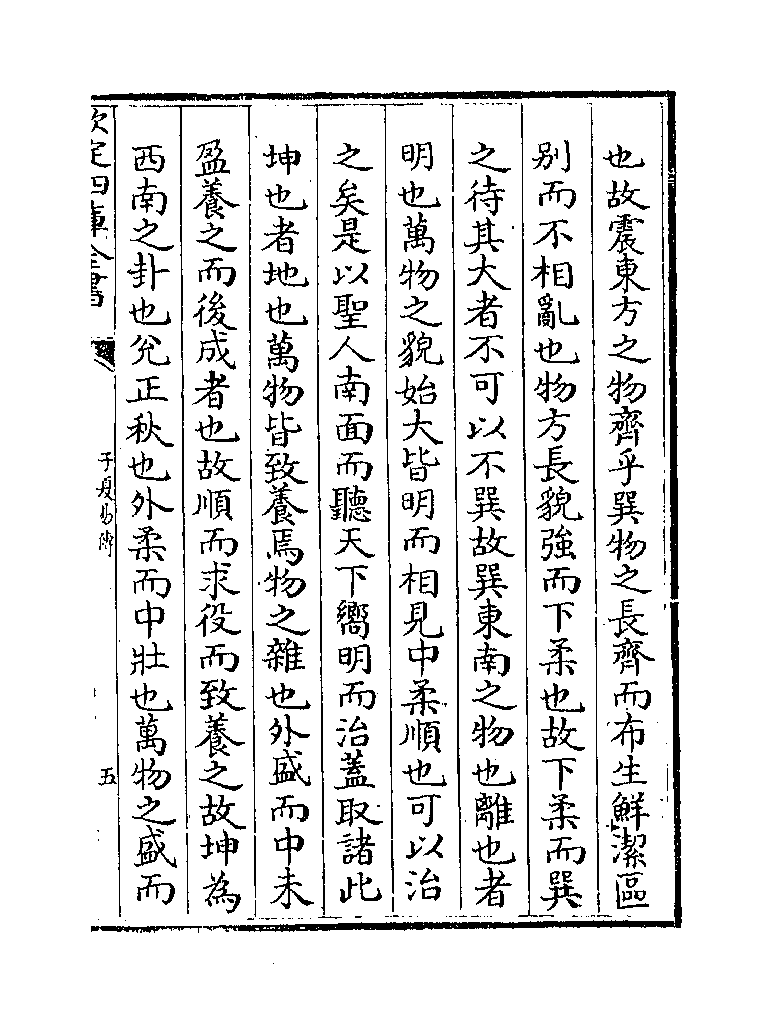 也故震東方之物齊乎巽物之長齊而布生鮮潔區
别而不相亂也物方長貌強而下柔也故下柔而巽
之待其大者不可以不巽故巽東南之物也離也者
明也萬物之貌始大皆明而相見中柔順也可以治
之矣是以聖人南面而聽天下嚮明而治蓋取諸此
坤也者地也萬物皆致養焉物之雜也外盛而中未
盈養之而後成者也故順而求役而致養之故坤為
西南之卦也兊正秋也外柔而中壯也萬物之盛而
欽定四庫全書
子夏易傳
五